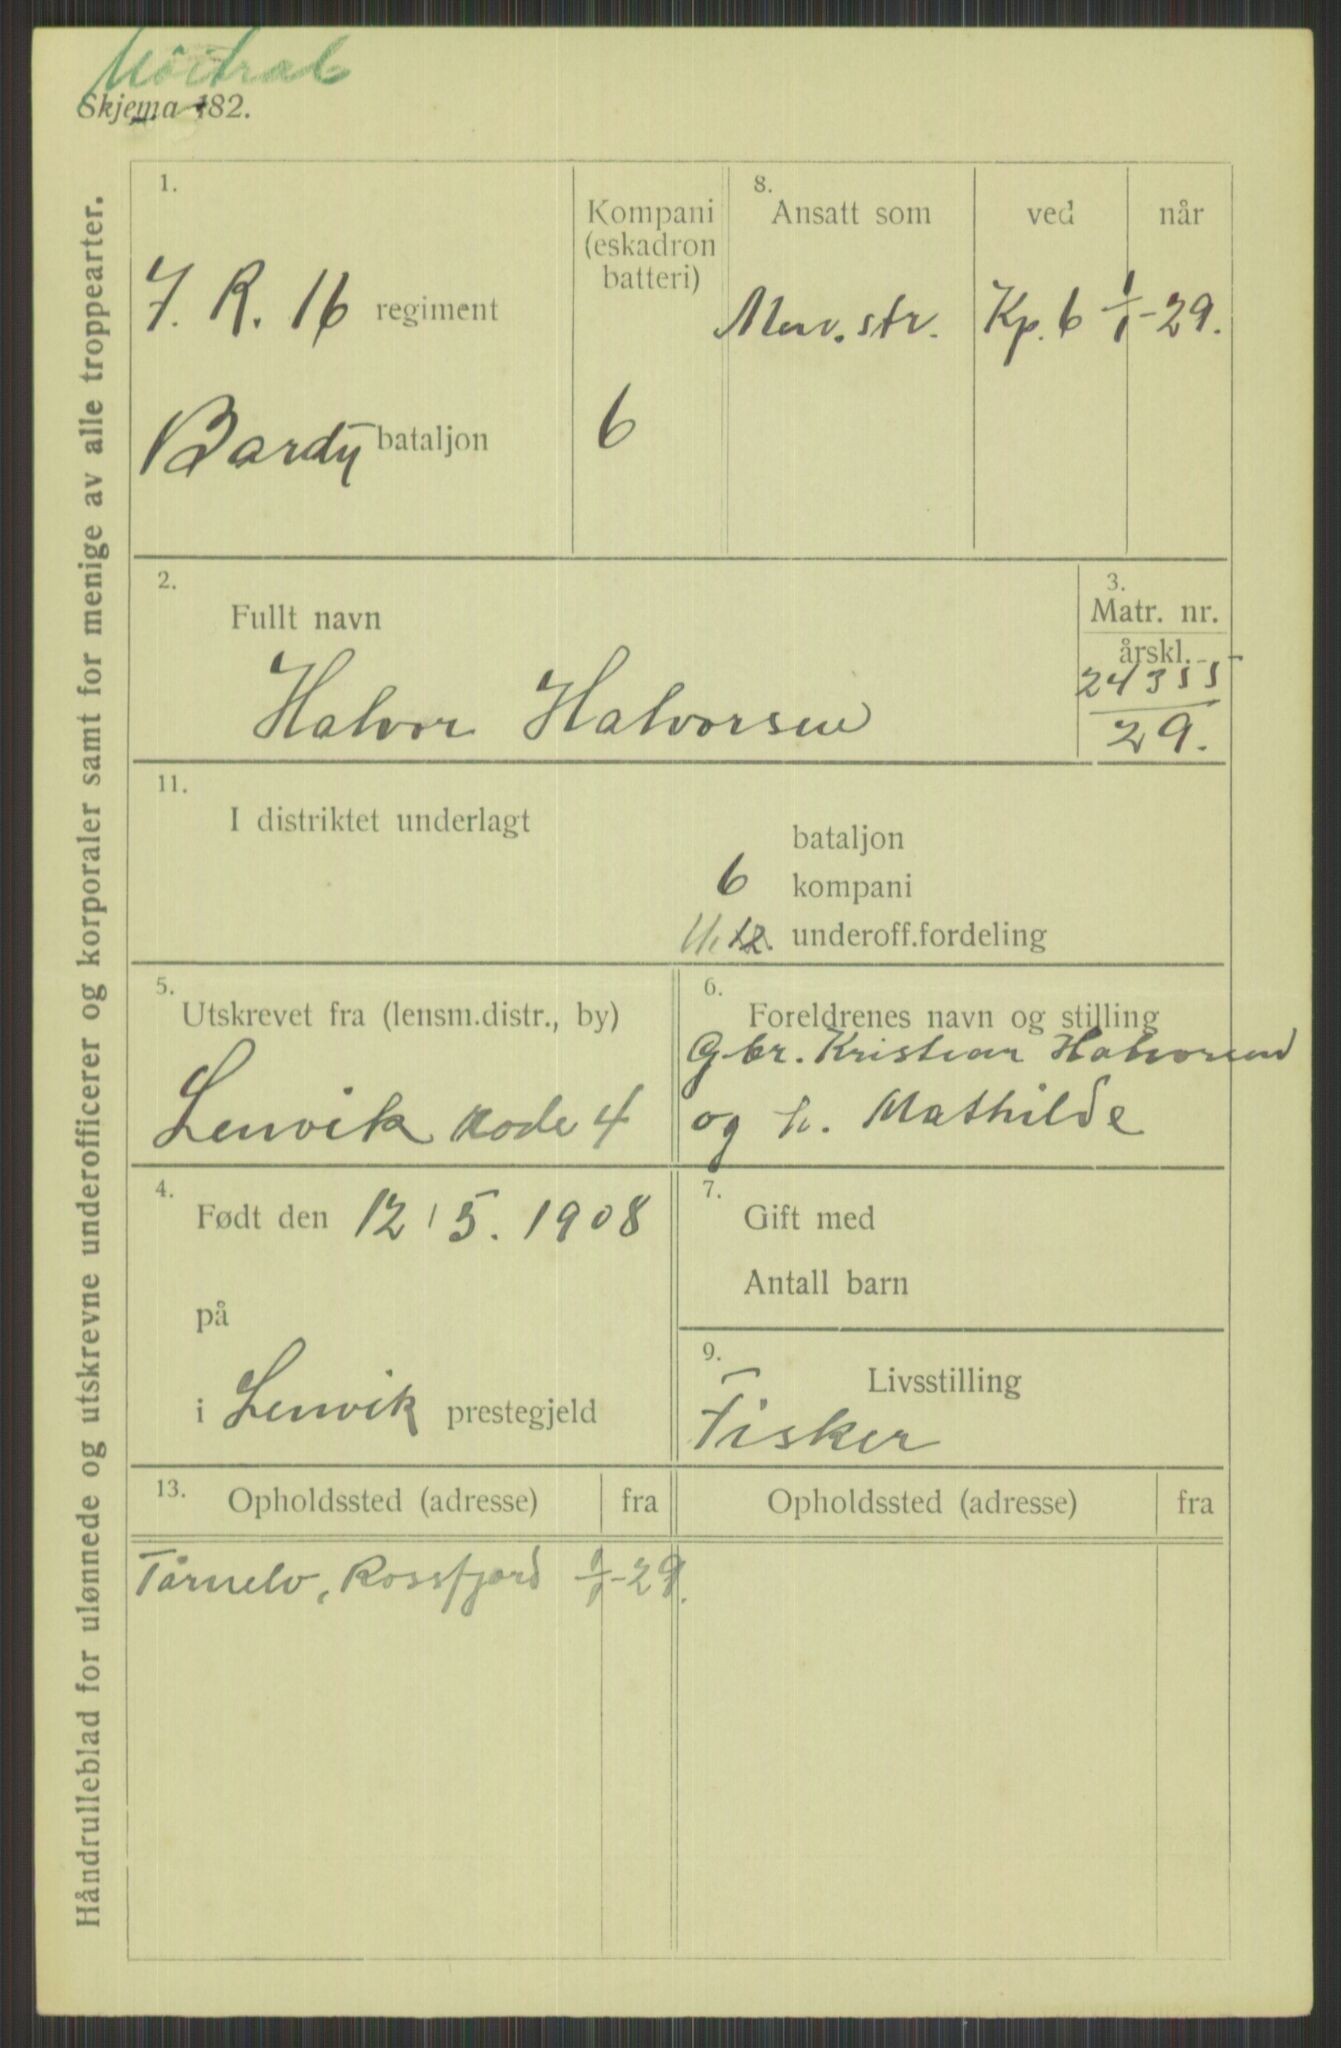 Skjema 182.
Håndrulleblad for ulønnede og utskrevne underofficerer og korporaler samt for menige av alle troppearter.
1.
I. R. 16 regiment
Bardu bataljon
Kompani
(eskadron
batteri)
6
8.
Ansatt som
ved
når
Men. str.
Kp. 6
1/1-29.
2.
Fullt navn
Halvor Halvorsen
3.
Matr. nr.
årskl.
24355
29.
11.
I distriktet underlagt
bataljon
6 kompani
underoff.fordeling
5.
Utskrevet fra (lensm.distr., by)
Lenvik Rode 4
6.
Foreldrenes navn og stilling
Gbr. Kristian Halvorsen
og h. Mathilde
4.
Født den 12/5. 1908
på
i Lenvik prestegjeld
7.
Gift med
Antall barn
9.
Livsstilling
Fisker
13.
Opholdssted (adresse)
fra
Opholdssted (adresse)
fra
Tårnelv, Rossfjord 1/1-29.